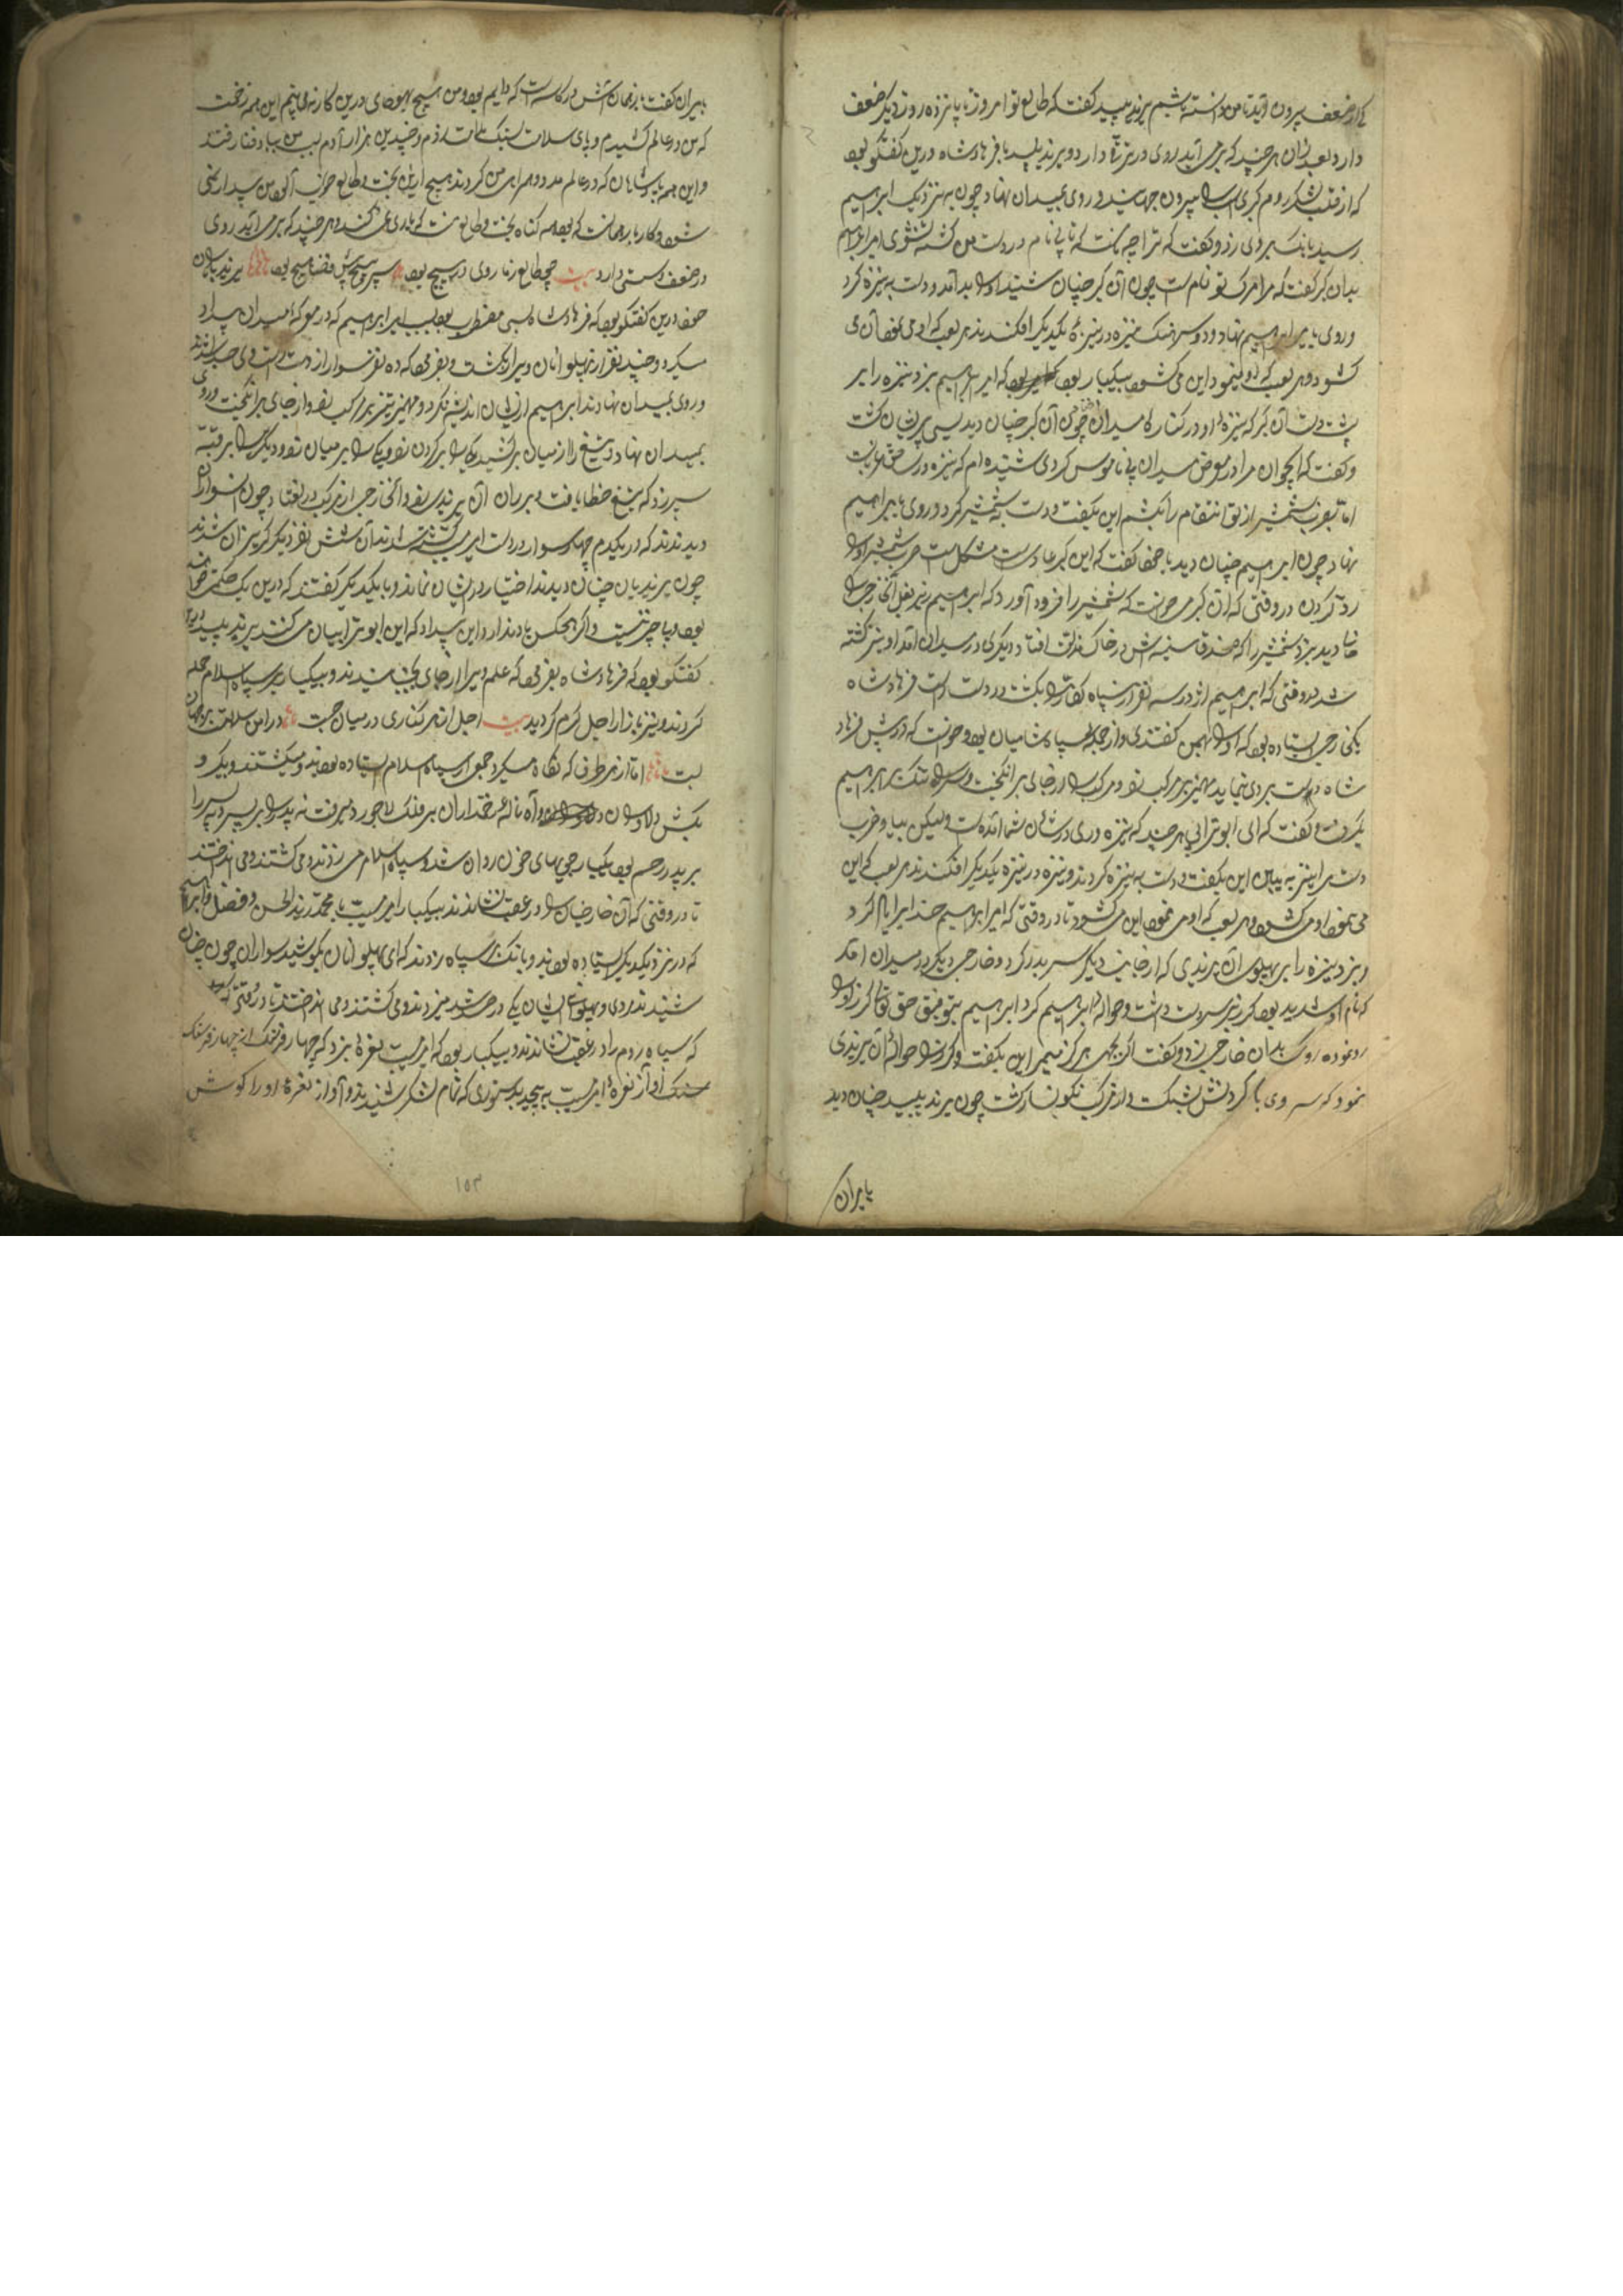 که از ضعف بیرون آید تا من دانسته باشم یرند پلید گفت که طالع تو امروز تا پانزده روز دیگر ضعف
دارد بعد از آن هر چند که برمی آید روی در ترقی دارد و یرند پلید با فرهاد شاه درین گفتگو بود
که از قلب لشکر روم گبری اسب را بیرون جهانید و روی بمیدان نهاد چون به نزدیک ابراهیم
رسید بانگ بر وی زد و گفت که ترا چه نام است که تا بی نام در دست من کشته نشوی امیر ابراهیم
بدان گبر گفت که مرا مرگ تو نام است چون آن گبر چنان شنید او را بد آمد و دست به نیزه کرد
و روی به ابراهیم نهاد و نیزه در نیزه یکدیگر افکندند هر بند که او می بست آن می
کشود و هر بند که او می نمود این می کشود بیکبار بود که امیر ابراهیم بزد نیزه را بر
پشت دست آن گبر که نیزه او در کناره میدان چون آن گبر چنان دید بسی پریشان گشت
و گفت که ای جوان مرا در معرض میدان بی ناموس کردی شنیده ام که نیزه در
اما بضرب شمشیر از تو انتقام را بکشم این بگفت و دست به شمشیر کرد و روی به ابراهیم
نهاد چون ابراهیم چنان دید با خود گفت که این گبر مشکل است ضرب شمشیر او را
رد کردن در وقتی که آن گبر می خواست که شمشیر را فرود آورد که ابراهیم زیر بغل آن خارجی را
خالی دید بزد شمشیر را که در خاک افتاد دیگری در میدان آمد او نیز کشته
شد در وقتی که ابراهیم از در سه نفر از سپاه کفار را بکشت در دست راست فرهاد شاه
یکی خارجی ایستاده بود که او را بهمن گفتندی و از جمله سپاه شامیان بود و خواست که در پیش فرهاد
شاه دست بردی نماید مهمیز بر مرکب زد و مرکب را از جای برانگیخت و سر راه تنگ بر ابراهیم
بگرفت و گفت که ای ابوترابی هر چند که نیزه وری در شان شما آمده است ولیکن بیا و ضرب
دست مرا نیز به بین این بگفت و دست به نیزه کردند و نیزه در نیزه یکدیگر افکندند هر بند که این
می نمود او می کشود و هر بند که او می نمود این می کشود تا در وقتی که امیر ابراهیم خدا را یاد کرد
و بزد نیزه را بر پهلوی آن یرندی که از جانب دیگر سر بدر کرد و خارجی دیگر در میدان آمد
که نام او شدید بود گرز بر سر دست داشت و حواله ابراهیم کرد ابراهیم بتوفیق حق تعالی گرز او را
رد نموده رو بدان خارجی زد و گفت اگر بجهی هرگز نمیرم این بگفت و گرز را حواله آن یرندی
نمود که سر وی با گردنش شکست و از مرکب نگونسار گشت چون یرند پلید چنان دید
بایران
بایران گفت که زمان آتش در کاسه است که دایم بود و من هیچ بهبودی درین کار نمی بینم این همه زحمت
که من در عالم کشیدم و پای سلامت بسنگ ملامت زدم و چندین هزار آدم بسبب من بباد فنا رفتند
و این همه پادشاهان که در عالم مدد و همراهی من کردند هیچ ازین بخت و طالع خواب آلود من بیدار نمی
شود و کار ما بر همانست که بود همه گناه بخت و طالع منست که یاری نمی کند و هر چند که برمی آید روی
در ضعف و سستی دارد بیت چو طالع ز ما روی در پیچ بود سپر هیچ پیش قضا هیچ بود یرند با یاران
خود درین گفتگو بود که فرهاد شاه بسی مضطرب بود بسبب امیر ابراهیم که در معرکه میدان بیداد
میکرد و چند نفر از پهلوانان ویرا بکشت و بفرمود که ده نفر سوار از دست راست وی جدا شدند
و روی بمیدان نهادند ابراهیم ازیشان اندیشه نکرد و مهمیز تیز بر مرکب زد و از جای برانگیخت و روی
بمیدان نهاد و تیغ را از میان برکشید یکی را بر گردن زد و یکی را بر میان زد و دیگری را بر قبه
سپر زد که تیغ خطا یافت و بر ران آن یرندی زد و آن خارجی از مرکب در افتاد چون سواران
دیدند که در یکدم چهار سوار در دست ایر کشته شدند آن شش نفر دیگر گریزان شدند
چون یرندیان چنان دیدند اختیار در ایشان نماند و با یکدیگر گفتند که درین یک
بود و یا چیزیست و اگر هیچکس یاد ندارد این بیداد که این ابوترابیان می کنند یرند پلید درین
گفتگو بود که فرهاد شاه بفرمود که علم ویرا از جای بجنبانیدند و بیکبار بر سپاه اسلام حمله
کردند و نیز بازار اجل گرم گردید بیت اجل از هر کناری در میان جست در امن و سلامت بر جهان
بست اما از هر طرف که نگاه میکرد جمعی از سپاه اسلام ایستاده بودند و میکشتند و بگیر و
بکش دلاوران و آه و ناله زخمداران بر فلک لاجورد میرفت نه پدر را بر پسر و نه پسر را
بر پدر رحم بود بیکبار جویهای خون روان شد و سپاه اسلام می زدند و می کشتند و می انداختند
تا در وقتی که آن خارجیان را در عقب نشاندند بیکبار امیر مسیب با محمد زید الحسن و فضل و ابراهیم
که در نزد یکدیگر ایستاده بودند و بانگ بر سپاه زدند که ای پهلوانان بکوشید سواران چون چنان
شنیدند روی و پهلوی ایشان یکی در صد شد میزدند و می کشتند و می انداختند تا در وقتی که
که سپاه روم را در عقب نشاندند و بیکبار بود که امیر مسیب نعره بزد که چهار فرسنگ از چهار فرسنگ
سنگ آواز نعره امیر مسیب به پیچید بدستوری که تمام لشکر شنیدند و آواز نعره او را گوش
۱۵۳